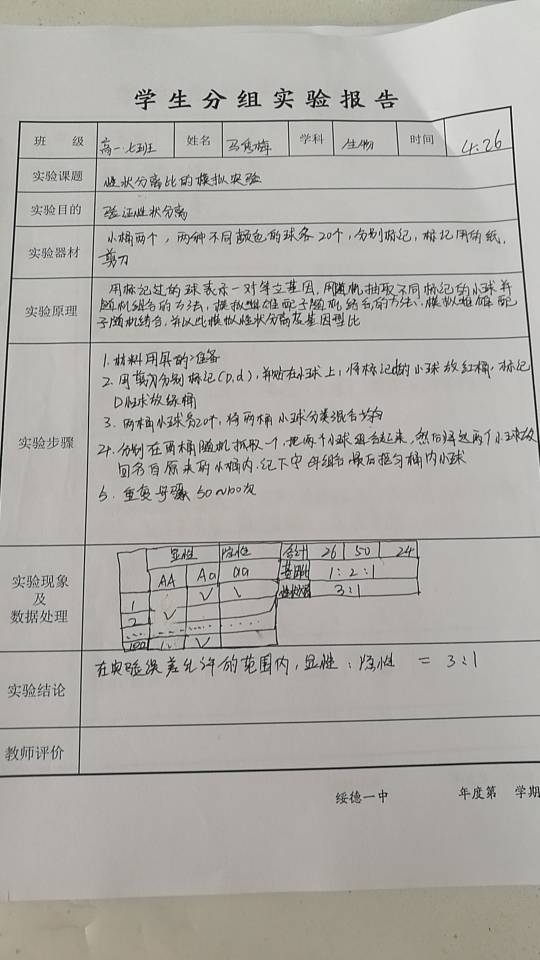 学生分组实验报告
班 级 高一.七班 姓名 学科 生物 时间 4.26
实验课题 性状分离比的模拟实验
实验目的 验证性状分离
实验器材 小桶两个，两种不同颜色的球各20个，分别标记，标记用的纸，
剪刀
实验原理 用标记过的球表示一对等位基因，用随机抽取不同标记的小球并
随机组合的方法，模拟雌雄配子随机结合的方法，模拟雌雄配
子随机结合，并以此模拟性状分离及基因型比
实验步骤 1. 材料用具的准备
2. 用剪刀分别标记(D,d)，并贴在小球上，将标记d的小球放红桶，标记
D小球放绿桶
3. 两桶小球各20个，将两桶小球分装混合均匀
4. 分别在两桶随机抓取一个，把两个小球组合起来，然后将这两个小球放
回各自原来的小桶内，记下字母组合最后摇匀桶内小球
5. 重复步骤 50~100次
实验现象
及
数据处理
显性 隐性 合计 26 50 24
AA Aa aa 基因比 1:2:1
1 √ \ 3:1
2 √
100 √
实验结论 在实验误差允许的范围内，显性：隐性 = 3:1
教师评价
绥德一中 年度第 学期